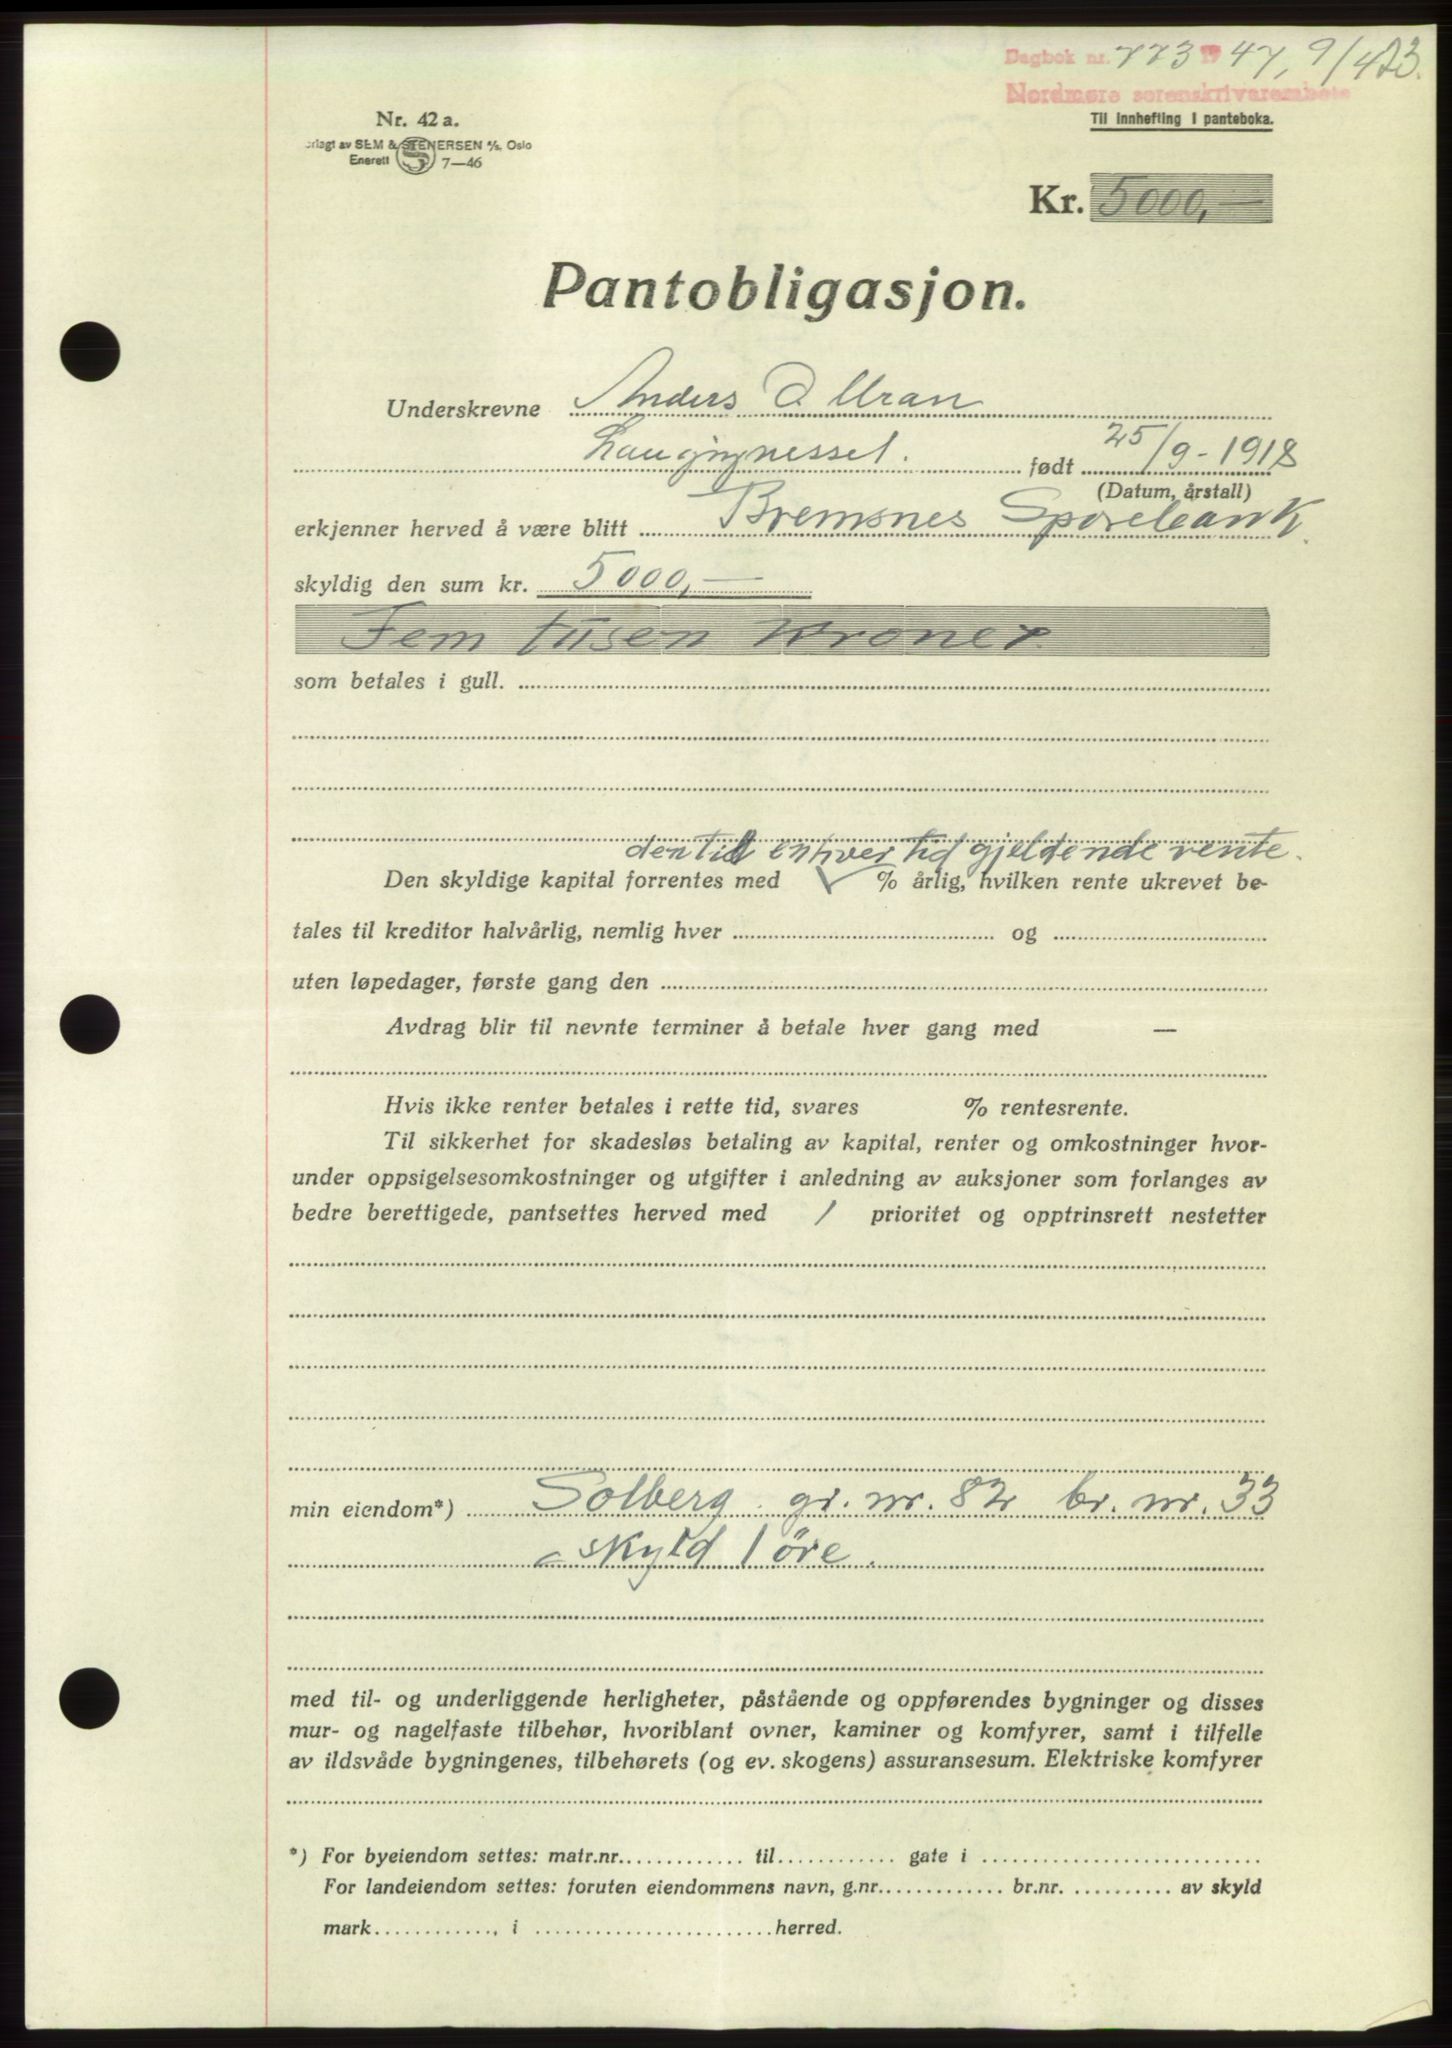 Dagbok nr. 773 1947, 9/4 23.
Nordmøre sorenskrivarembete
Til innhefting i panteboka.
Nr. 42 a.
rlagt av SEM & STENERSEN A/S, Oslo
Enerett 7—46
Kr. 5000,—
Pantobligasjon.
Underskrevne Anders O Uran
født 25/9-1918
(Datum, årstall)
erkjenner herved å være blitt Bremsnes Sparebank
skyldig den sum kr. 5000,—
Fem tusen Kroner
som betales i gull.
den til enhver tid gjeldende rente.
Den skyldige kapital forrentes med % årlig, hvilken rente ukrevet be-
tales til kreditor halvårlig, nemlig hver og
uten løpedager, første gang den
Avdrag blir til nevnte terminer å betale hver gang med —
Hvis ikke renter betales i rette tid, svares % rentesrente.
Til sikkerhet for skadesløs betaling av kapital, renter og omkostninger hvor-
under oppsigelsesomkostninger og utgifter i anledning av auksjoner som forlanges av
bedre berettigede, pantsettes herved med / prioritet og opptrinsrett nestetter
min eiendom*) Solberg gr. nr. 82 br. nr. 33
skyld 1 øre.
med til- og underliggende herligheter, påstående og oppførendes bygninger og disses
mur- og nagelfaste tilbehør, hvoriblant ovner, kaminer og komfyrer, samt i tilfelle
av ildsvåde bygningenes, tilbehørets (og ev. skogens) assuransesum. Elektriske komfyrer
*) For byeiendom settes: matr.nr. til gate i
For landeiendom settes: foruten eiendommens navn, g.nr. br.nr. av skyld
mark , i herred.